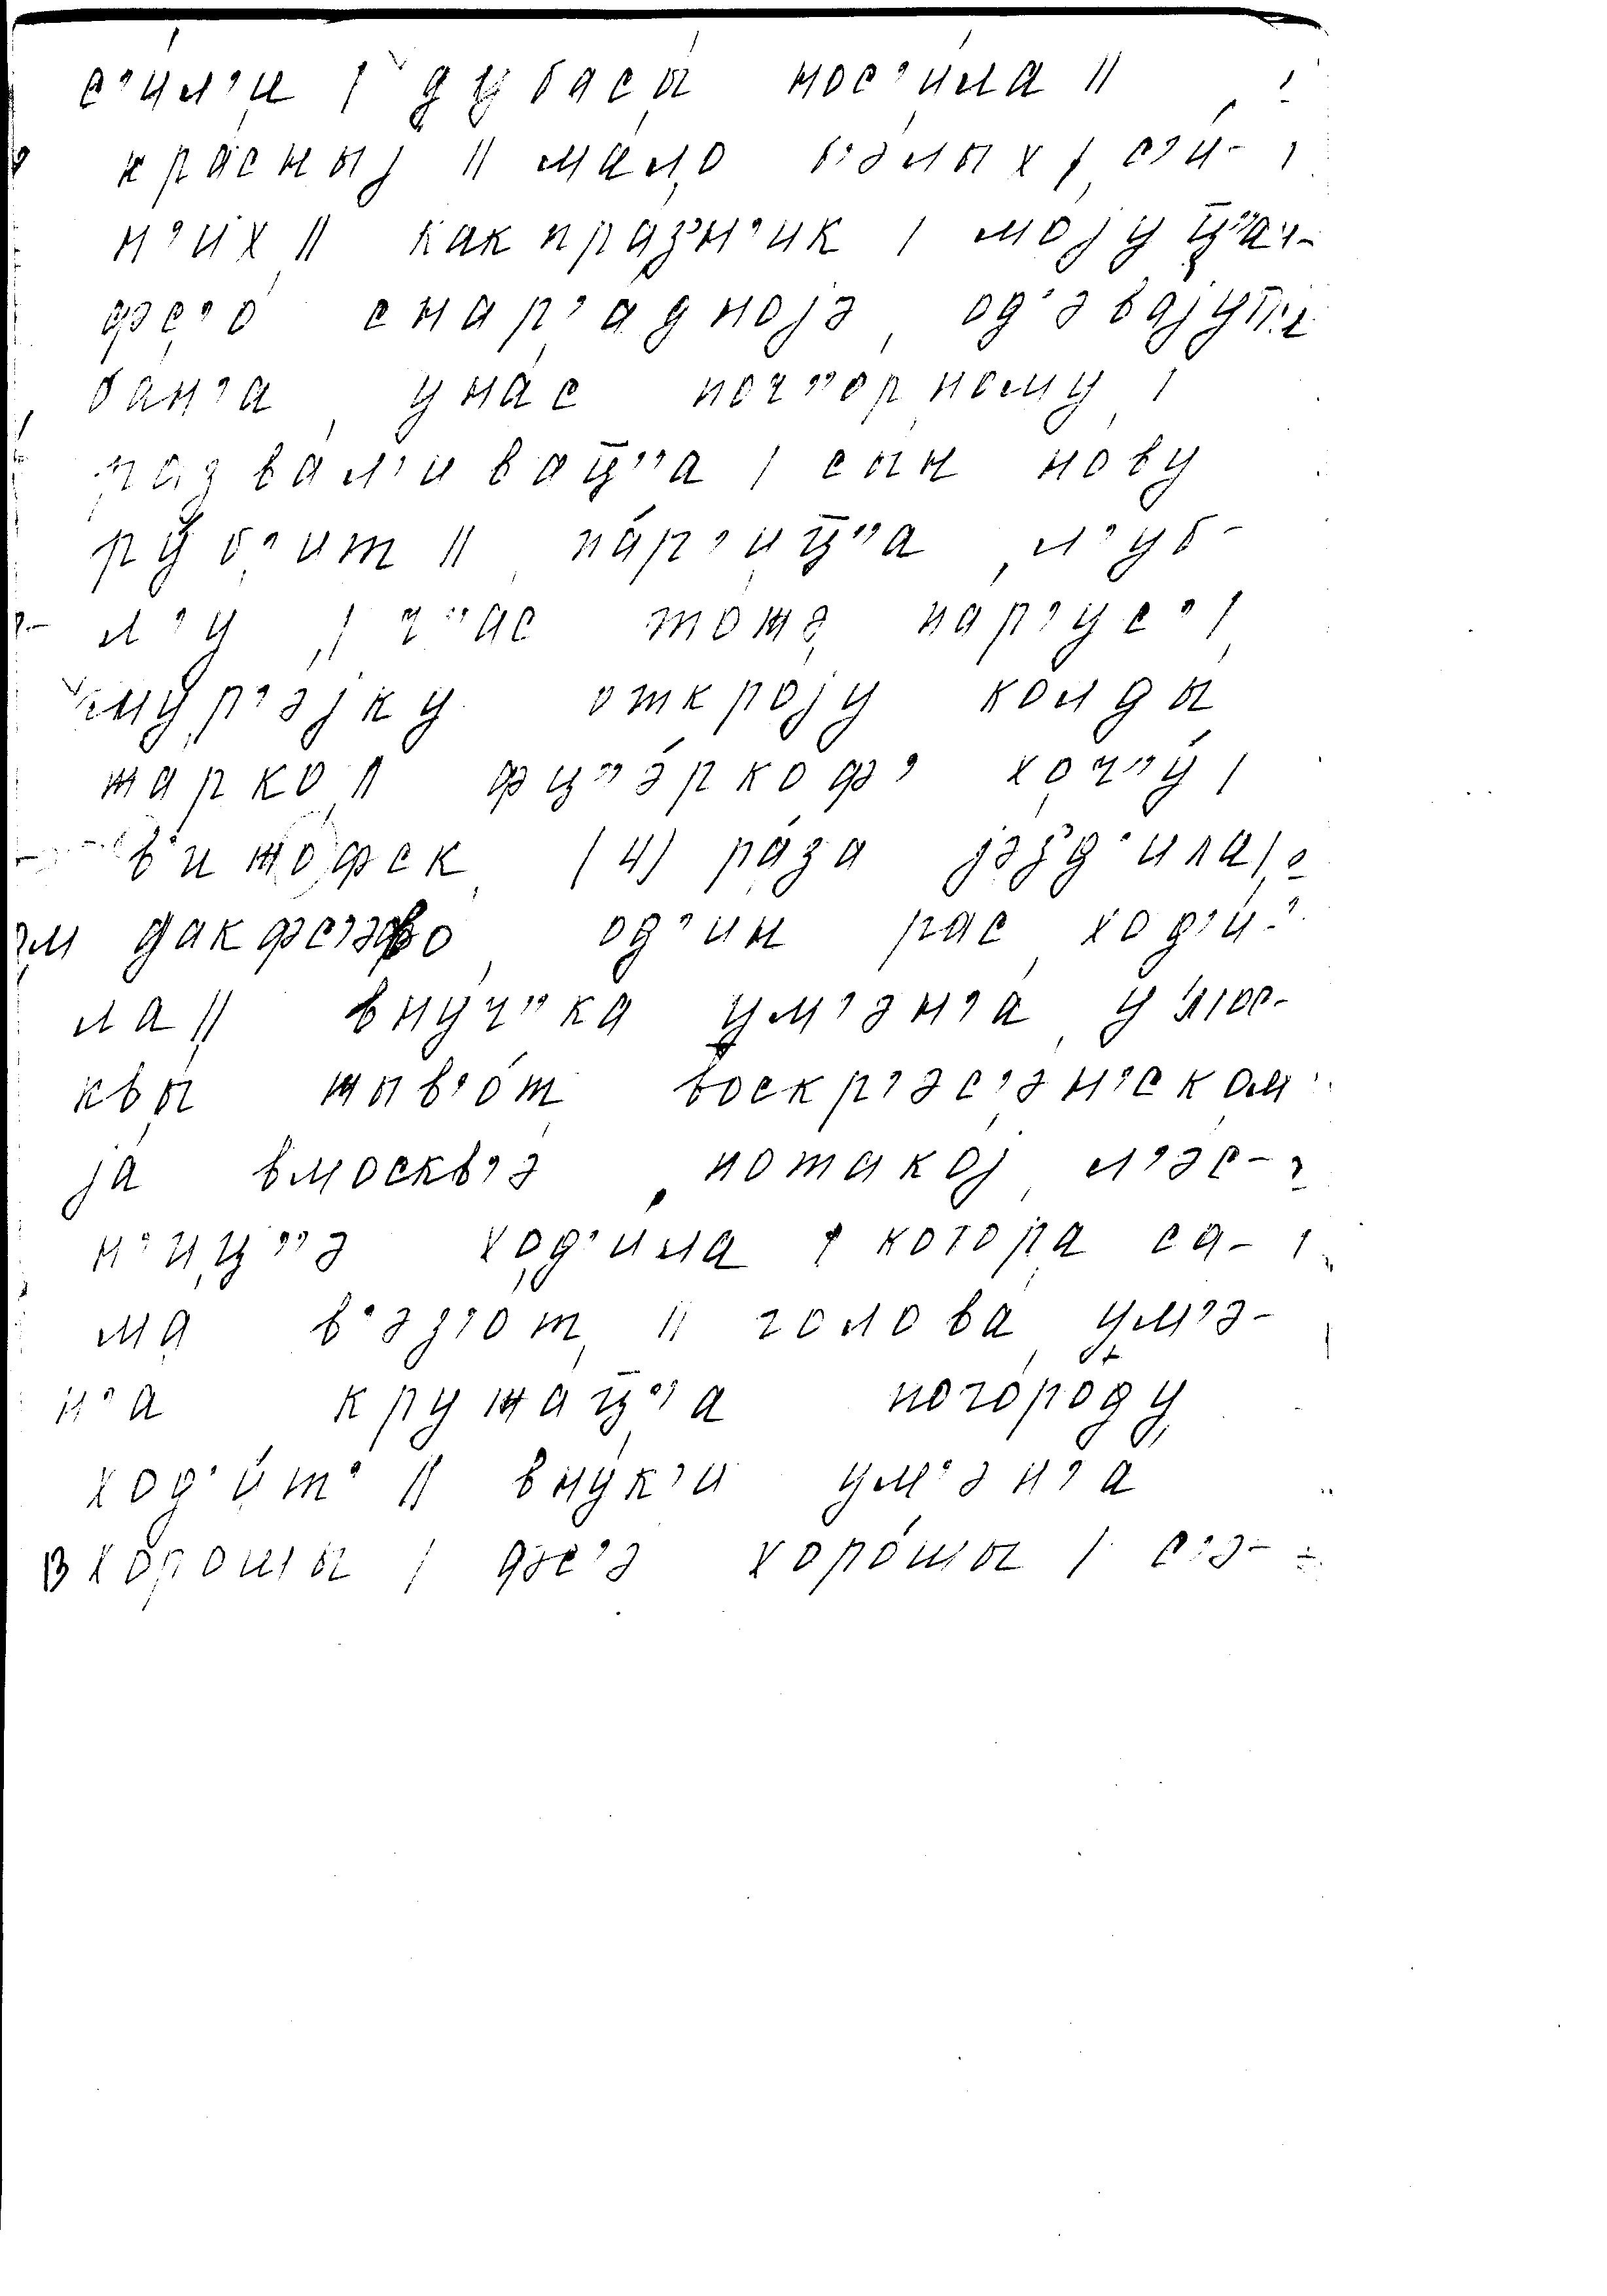 с’и́л’и / дубасы́ нос’и́ла //
кра́сныј // ма́ло б’э́лых / с’и́-
н’их // как пра́з’н’ик / мо́јуц̅’’ач-
фс’о́ снар’а́дноjэ од’эва́јут
ба́н’а уна́с поч’’о́рному /
разва́л’ивац̅’’а / сын но́ву
ру́б’ит // па́р’иц̅’’а л’уб-
л’у́ / ч’’ас то́жэ па́р’ус’ /
мур’э́јку откро́ју колды́
жа́рко // фц’’э́ркоф’ хоч’’у́ /
в’ижо́фск (4) ра́за јэ́з’д’ила /
дакфс’эво од’и́н рас ход’и́-
ла // вну́ч’’ка ум’эн’а́ у мос-
квы́ жыв’о́т воскр’эс’э́н’ском
ја́ вмоскв’э́ потако́ј л’э́с-
н’иц’’э ход’и́ла / кото́ра са-
ма́ в’эз’о́т // голова́ ум’э-
н’а́ кружа́ц̅’’а пого́роду
ход’и́т’ // вну́к’и ум’эн’а́
хоро́шы / фс’э хоро́шы / с’э-